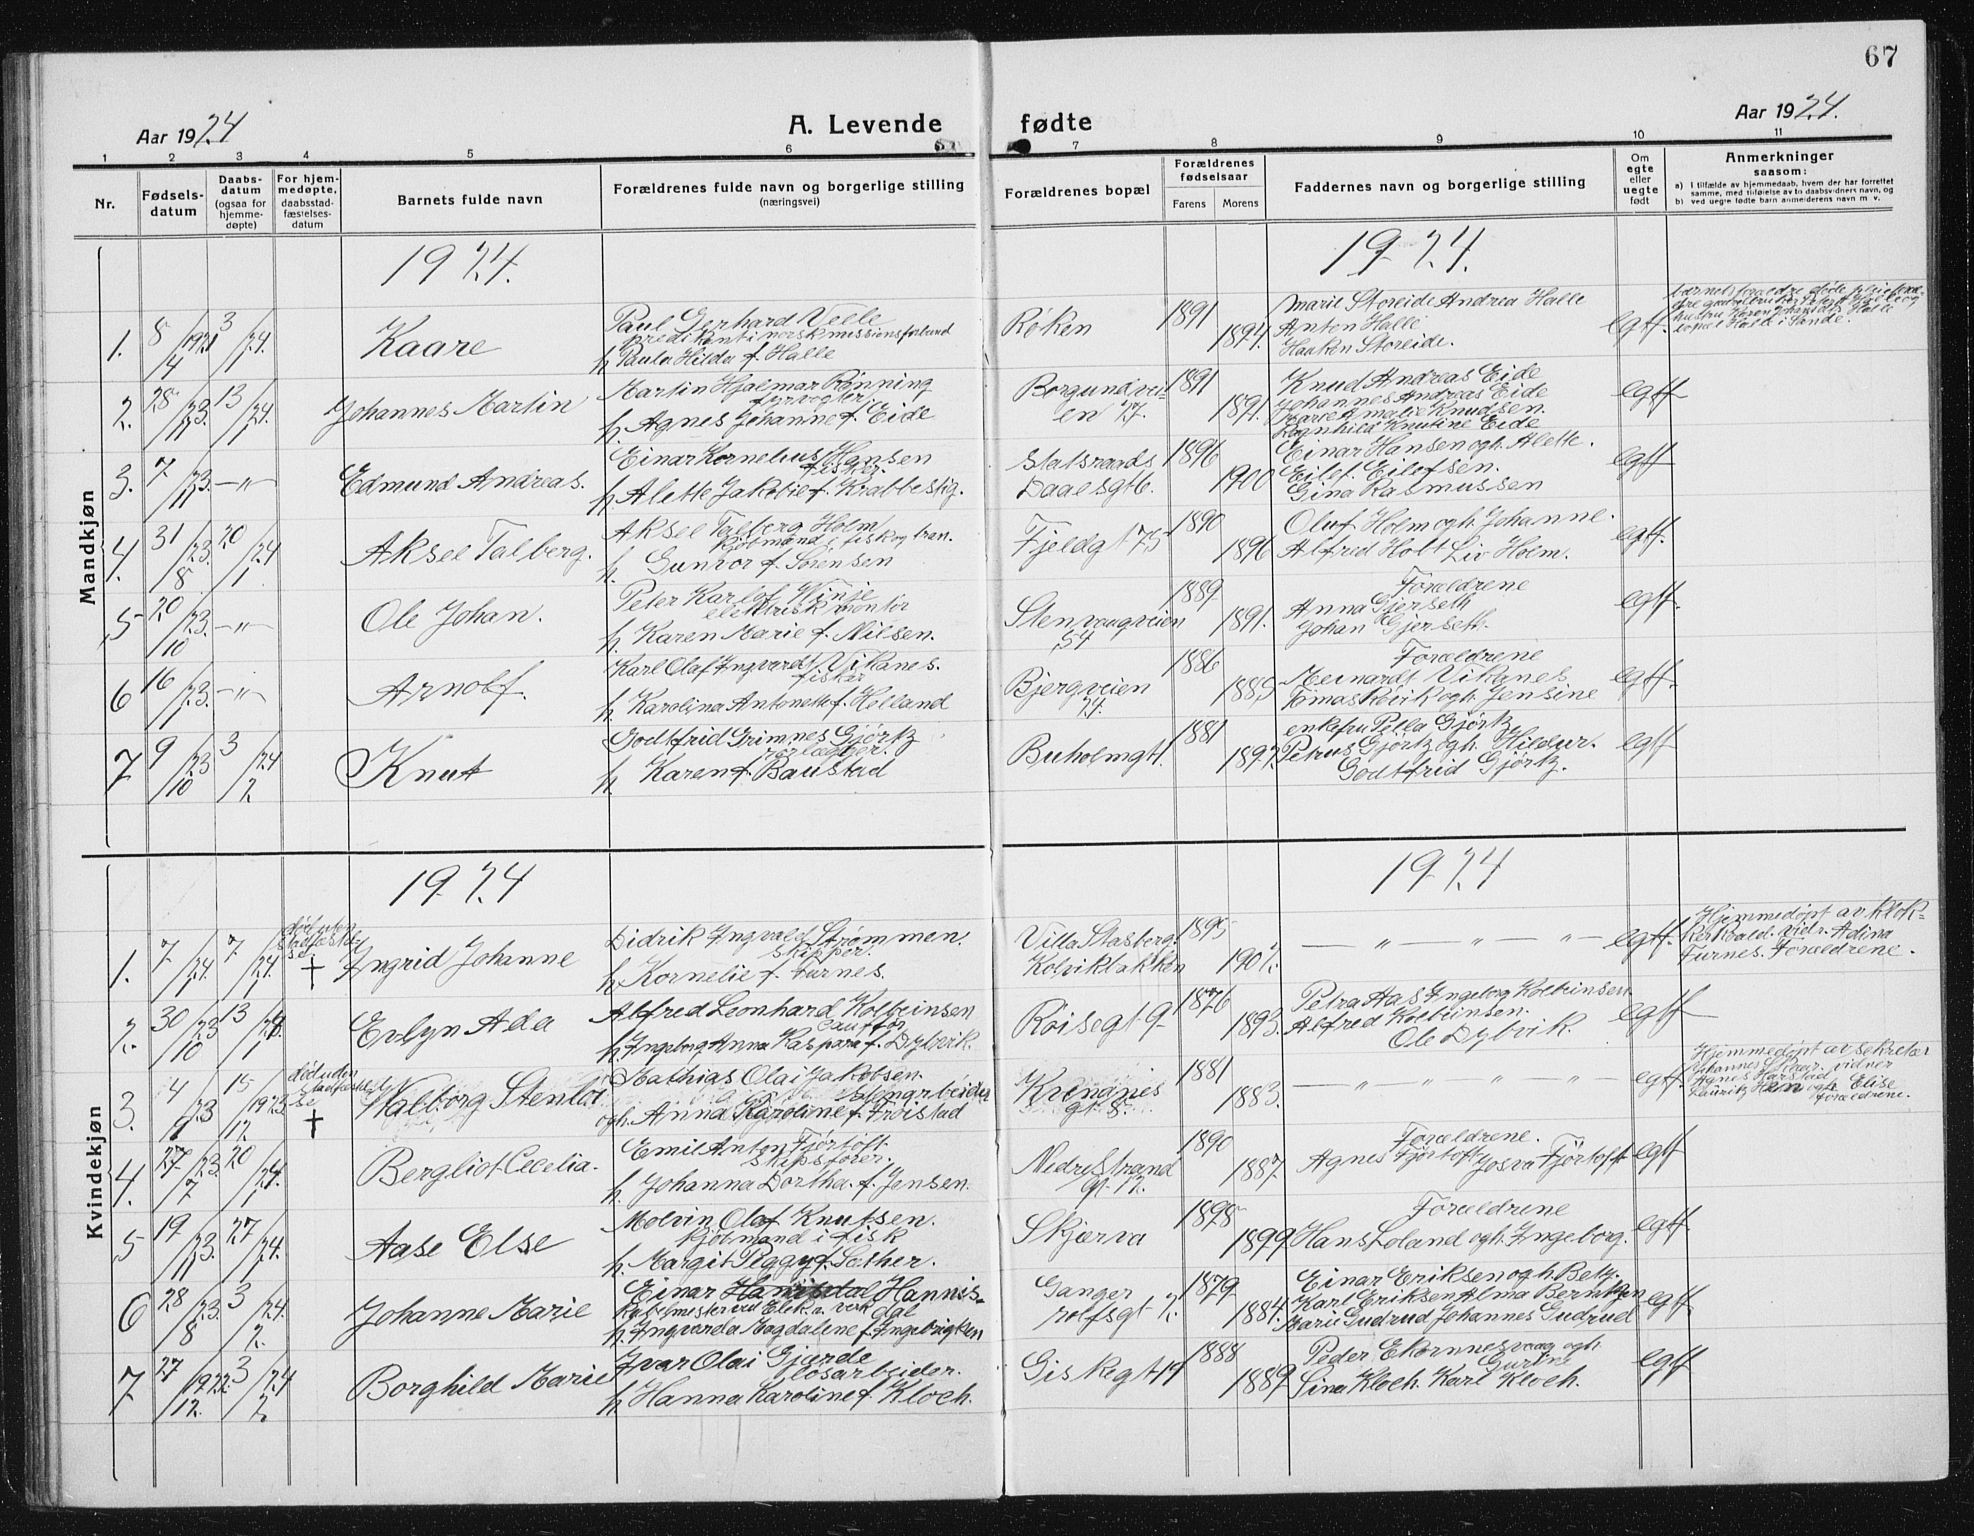 67
Aar 1924
A. Levende fødte
Aar 1924.
1 2 3 4 5 6 7 8 9 10 11
Nr.
Fødsels-
datum
Daabs-
datum
(ogsaa for
hjemme-
døpte)
For hjem-
medøpte,
daabsstad-
fæstelses-
datum
Barnets fulde navn
Forældrenes fulde navn og borgerlige stilling
(næringsvei)
Forældrenes bopæl
Forældrenes
fødselsaar
Farens Morens
Faddernes navn og borgerlige stilling
Om
egte
eller
uegte
født
Anmerkninger
saasom:
a) I tilfælde av hjemmedaab, hvem der har forrettet
samme, med tilføielse av to daabsvidners navn, og
b) ved uegte fødte barn anmelderens navn m. v.
Mandkjøn
1924.
1924.
1. 8/4 1921 3/1 24.
Kaare
Paul Gerhard Velle
predikant i norsk missionsforbund
h. Paula Hilda f. Halle
Røken
1891
1894.
Marie Storeide Andrea Halle
Anton Halle
Haaken Storeide.
egtf.
2. 28/11 23. 13/1 24.
Johannes Martin
Martin Hjalmar Rønning
fyrvogter.
h. Agnes Johanne f. Eide
Borgundvei-
en 17.
1891
1891.
Knud Andreas Eide
Johannes Andreas Eide
Maree Amalie Knudsen.
Ragnhild Knutine Eide
egtf
3. 7/11 23. — " —
Edmund Andreas.
Einar Kornelius Hansen
fisker.
h. Alette Jakobie f. Krabbestig.
Statsraads
Daaesgt 6.
1896
1900
Einar Hansen og h. Alette.
Eilef Eilefsen.
Gina Rasmussen
egtf
4. 31/8 23. 20/1 24
Aksel Talberg.
Aksel Talberg Holm
kjøbmand i fisk og tran.
h. Gunvor f. Sørensen
Fjeldgt 75
1890
1896
Oluf Holm og h. Johanne.
Alfred Holt Liv Holm.
egtf.
5 20/10 23. — " —
Ole Johan.
Peter Karlof Hinje
elektrisk montør
h. Karen Marie f. Nilsen.
Stenvaagveien
54
1889
1891.
Forældrene
Anna Gjerseth
Johan Gjerseth.
egtf.
6 16/1 23. — " —
Arnolf.
Karl Olaf Ingvardt Vikanes.
fisker
h. Karolina Antonette f. Holland
Bjergveien
24.
1886
1885
Forældrene
Meinardt Vikanes
Tomas Røvik og h. Jensine
egtf.
7 9/10 23 3/2 24
Knut
Godtfrid Grimnes Gjørtz
rørlægger.
h. Karen f. Baustad
Buholmgt 1.
1881
1897.
enkefru Pella Gjørtz
Petrus Gjørtz og h. Hildur.
Godtfrid Gjørtz.
egtf
Kvindekjøn
1924
1924
1. 7/1 24. 7/1 24.
død uten
stadfæstel
se
†
Ingrid Johanne
Didrik Ingvald Strømmen.
skipper.
h. Kornelie f. Furnes.
Villa Stasberg.
Kolvikbakken
1895
1902.
— " — " — " —
egtf.
Hjemmedøpt av klok-
ker Roald. vidr. Adina
Furnes. Forældrene.
2. 30/10 23 13/1 24.
Evlyn Ada
Alfred Leonhard Kolbeinsen
h. Ingeborg Anna Kaspara f. Dybvik.
Røisegt 9
1876
1893.
Petra Aas Ingeborg Kolbeinsen.
Alfred Kolbeinsen.
Ole Dybvik.
egtf
3. 4/9 23 15/12 1923
død uden
stadfæstel
se
†
Valborg Stenlot
Mathias Olai Jakobsen.
h. Anna Karoline f. Frøistad
Krengnis
gt 8.
1881
1883.
— " — " — " —
egtf.
Hjemmedøpt av sekretær
Johannes vidner
Agnes Harstad
Lauritz og h. Elise
Forældrene.
4. 27/7 23. 20/1 24.
Bergliot Cecelia.
Emil Anton Fjørtoft.
skipsfører.
h. Johanna Dorthea. f. Jensen.
Nedre Strand
gt. 12.
1890
1887.
Forældrene.
Agnes Fjørtoft Josva Fjørtoft
egtf
5 19/11 23. 27/1 24.
Aase Else
Molvin Olaf Knutsen.
kjøbmand i fisk
h. Margit Peggy f. Sæther.
Skjærva
1898
1899
Forældrene
Hans Loland og h. Ingeborg.
egtf
6 28/8 23. 3/2 24.
Johanne Marie
Einar Hannisdal Hannis-
dal
Kabelmester ved Elek. verk
h. Ingvarda Magdalene f. Ingebrigtsen
Ganger
rolfsgt 2.
1879
1884.
Einar Eriksen og h. Betz.
Karl Eriksen Alma Berntzen
Marie Gudrud Johannes Gudrud
egtf
7 27/12. 1922. 3/2 24
Borghild Marie
Ivar Olai Gjærde
løsarbeider.
h. Hanna Karoline f. Kloch.
Giskegt 19
1888
1889
Peder Ekornnesvaag og h.
Gurine
Sina Kloch. Karl Kloch.
egtf